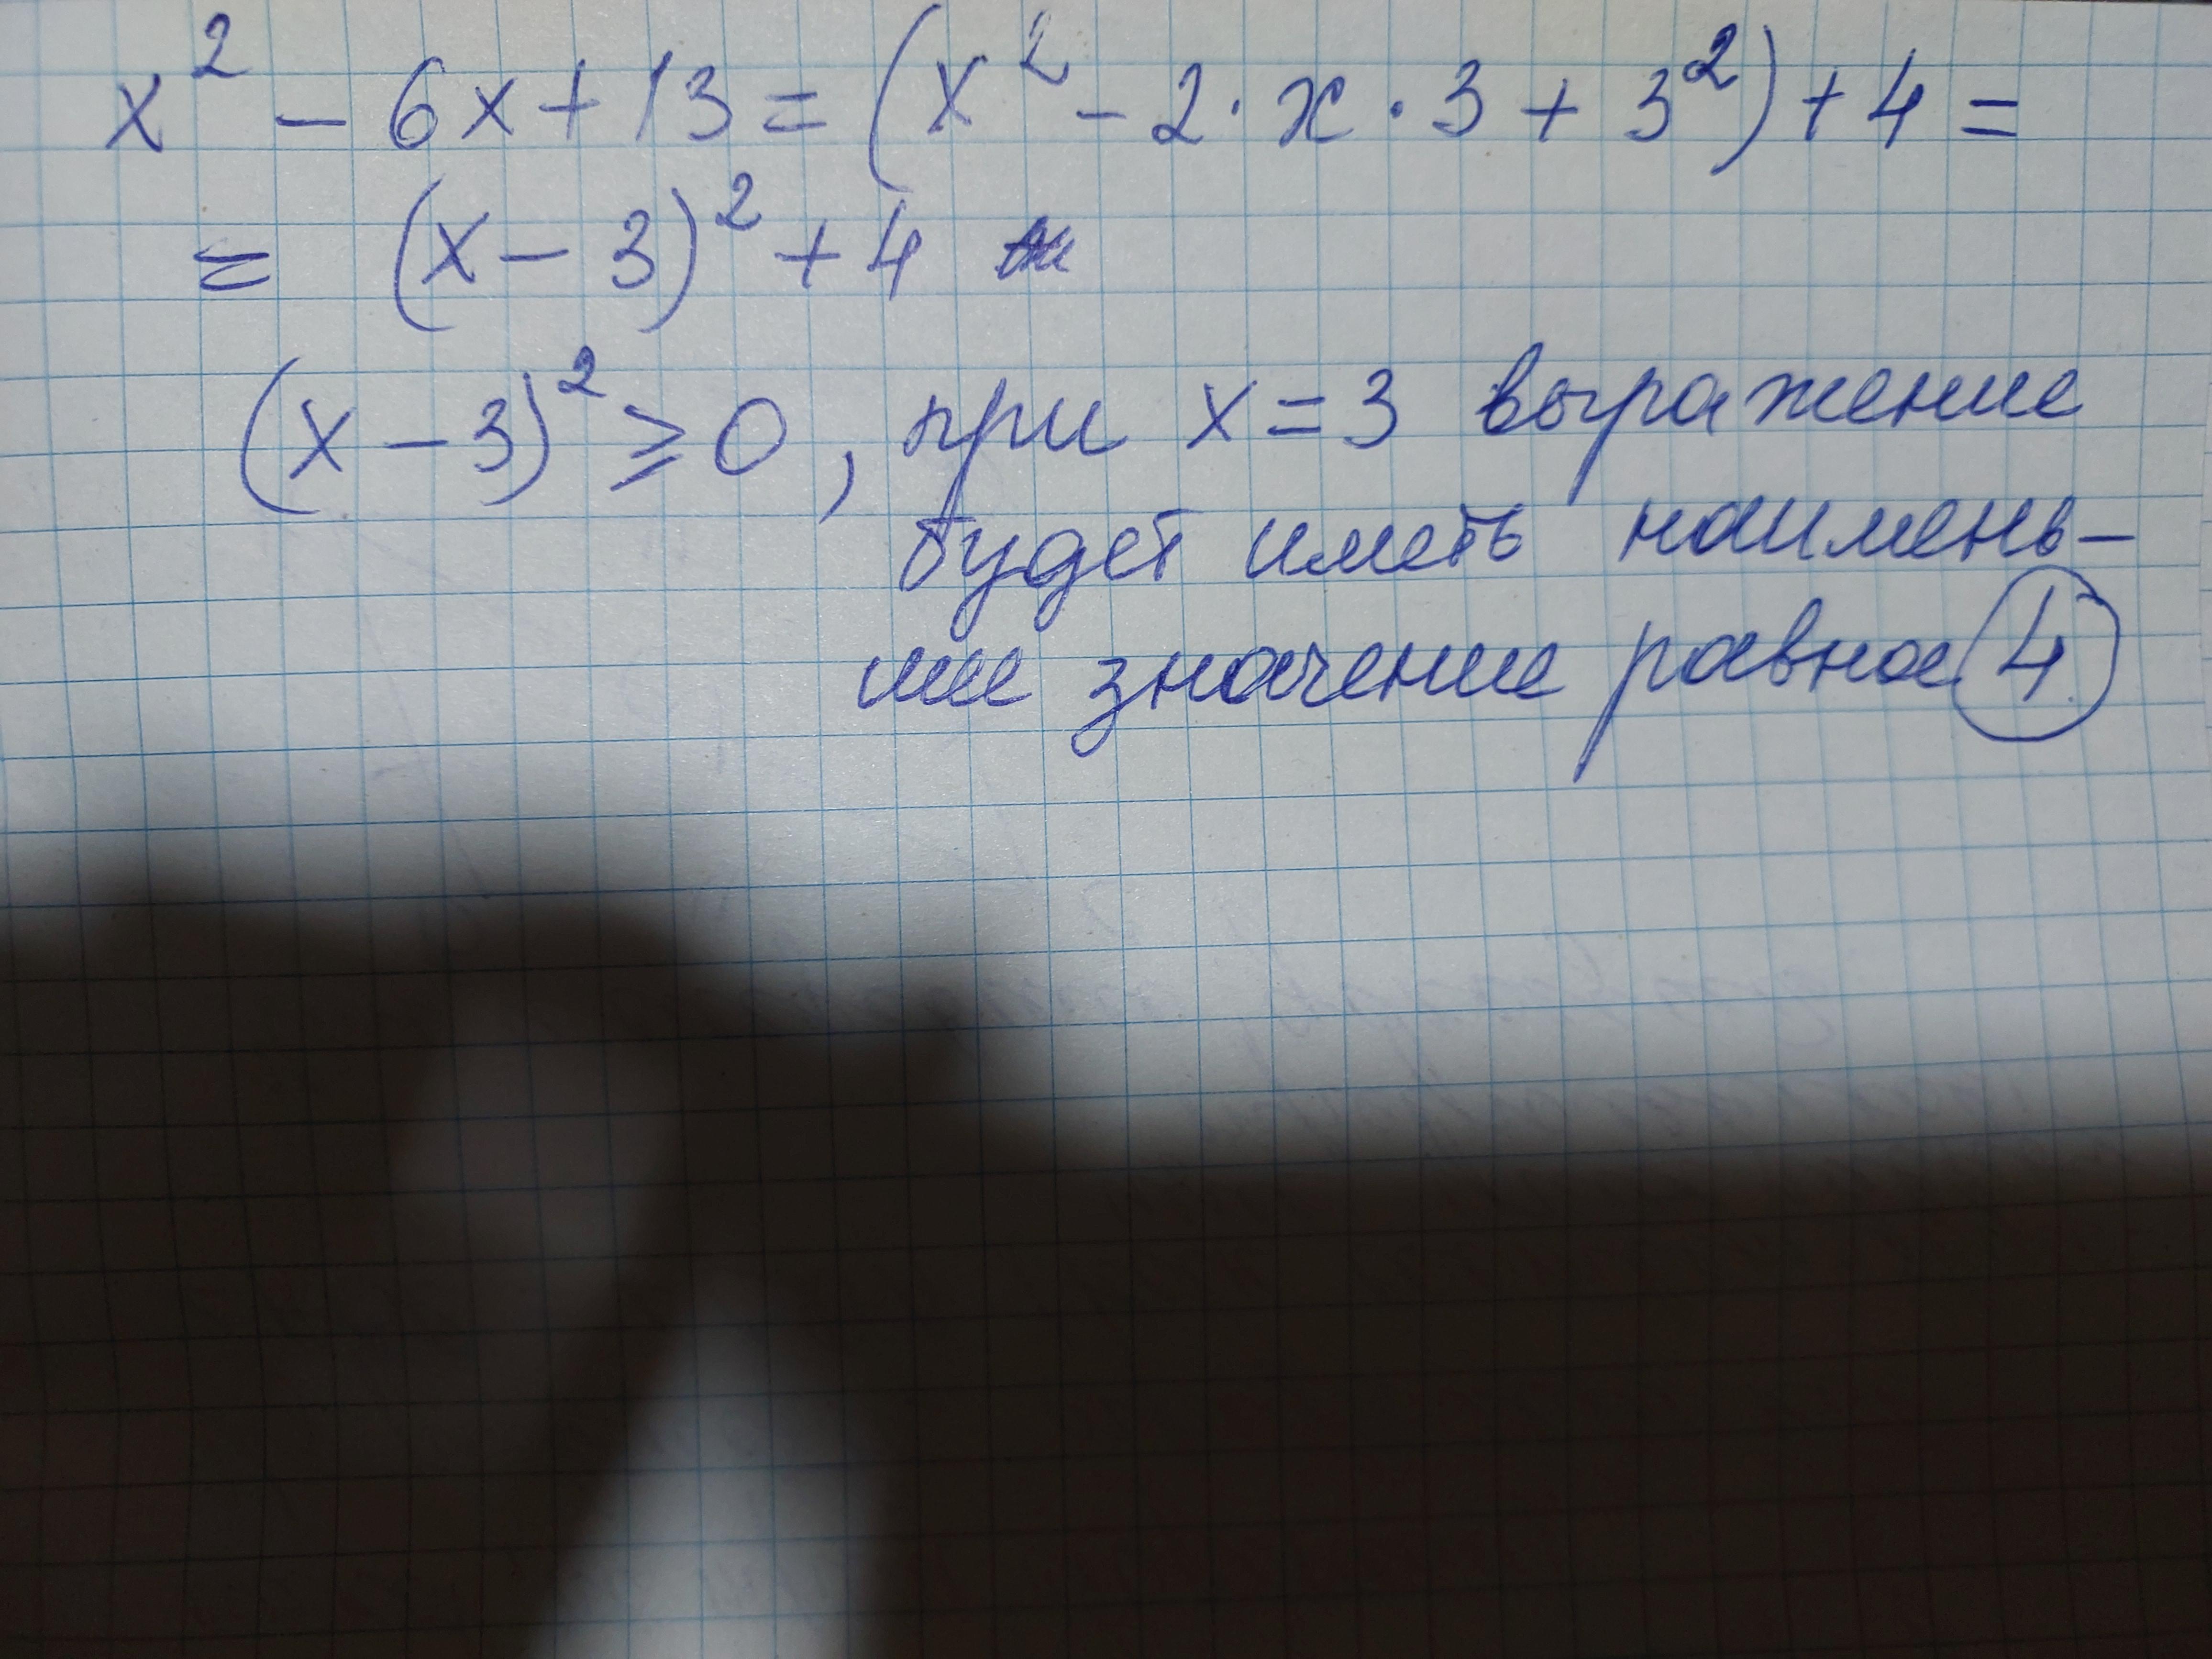 x² - 6x + 13 = (x² - 2 · x · 3 + 3²) + 4 =
= (x - 3)² + 4
(x - 3)² ≥ 0, при x = 3 выражение
будет иметь наимень-
шее значение равное 4